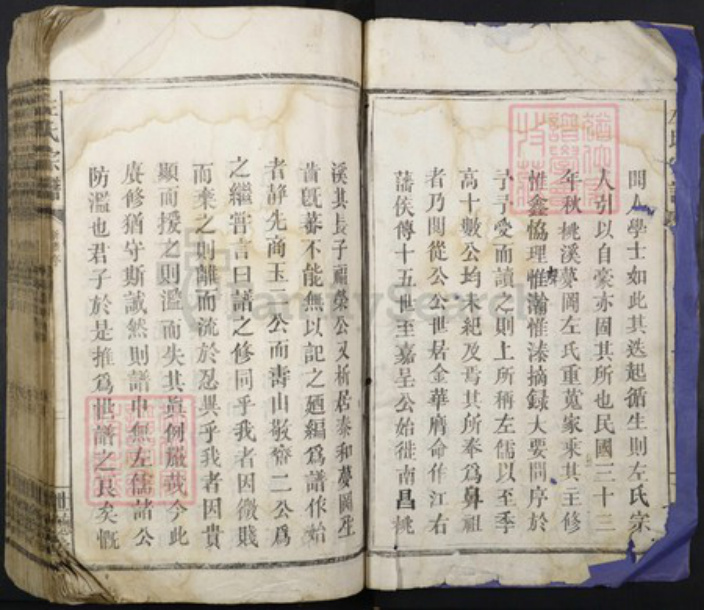 聞人學士如此其迭起循生則左氏宗
人引以自豪亦固其所也民國三十三
年秋桃溪夢岡左氏重蒐家乘其主修
惟鑫協理惟瀚惟溱摘録大要問序於
予予受而讀之則上所稱左儒以至季
高十數公均未紀及焉其所奉爲鼻祖
者乃閥從公公世居金華膺命作江右
藩侯傳十五世至嘉呈公始徙南昌桃
溪其長子福榮公又析居泰和夢岡生
昔旣蕃不能無以記之廼編爲譜作始
者静先商玉二公而壽山敬齋二公爲
之繼嘗言曰譜之修同乎我者因微賤
而棄之則離而流於忍異乎我者因貴
顯而援之則濫而失其眞例嚴哉今此
賡修猶守斯誡然則譜中無左儒諸公
防濫也君子於是推爲世譜之良矣慨
左氏宗譜
FamilySearch